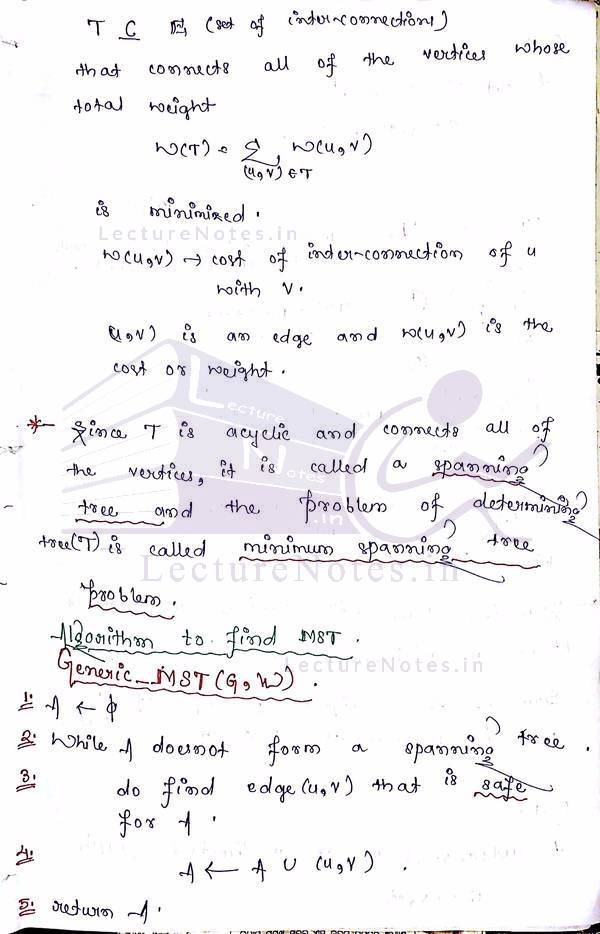 T ⊆ E (set of inter-connections)
that connects all of the vertices whose
total weight
w(T) = Σ w(u,v)
(u,v) ∈ T
is minimized.
LectureNotes.in
w(u,v) → cost of inter-connection of u
with v.
(u,v) is an edge and w(u,v) is the
cost or weight.
Lecture
Notes
.in
* Since T is acyclic and connects all of
the vertices, it is called a spanning
tree and the problem of determining
tree(T) is called minimum spanning tree
LectureNotes.in
problem.
Algorithm to find MST.
LectureNotes.in
Generic_MST(G,W).
1. A ← ϕ
2. While A doesnot form a spanning tree.
3. do find edge(u,v) that is safe
for A.
4. A ← A ∪ (u,v).
5. return A.